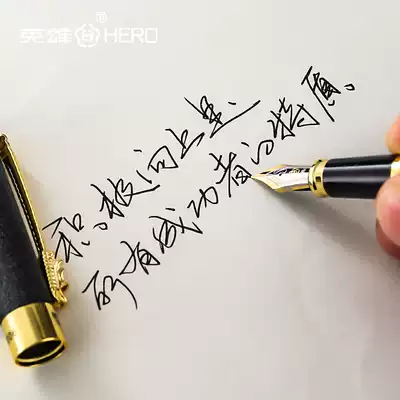 英雄 HERO®
积极向上是
所有成功者的特质。